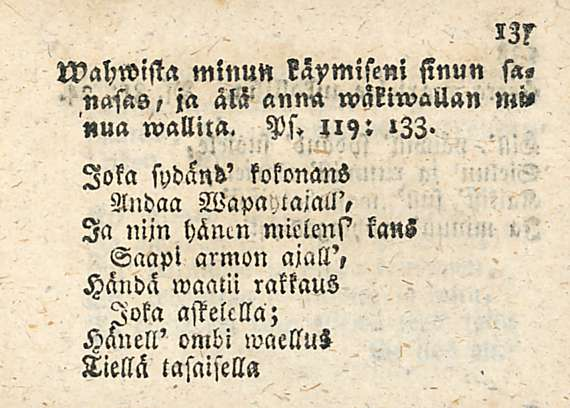 137
Wahwista minun käymiseni sinun sa-
nasas, ja älä anna wäkiwallan mi-
nua wallita. Ps. 119: 133.
Joka sydänd' kokonans
Andaa Wapahtajall',
Ja niin hänen mielens' kans
Saapi armon ajall',
Händä waatii rakkaus
Joka askelella;
Hänell' ombi waellus
Tiellä tasaisella